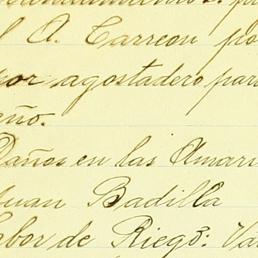 l A. Carreon po
por agostadero para
eño.
Daños en las Amari
Juan Badilla
Labor de Riego: Va